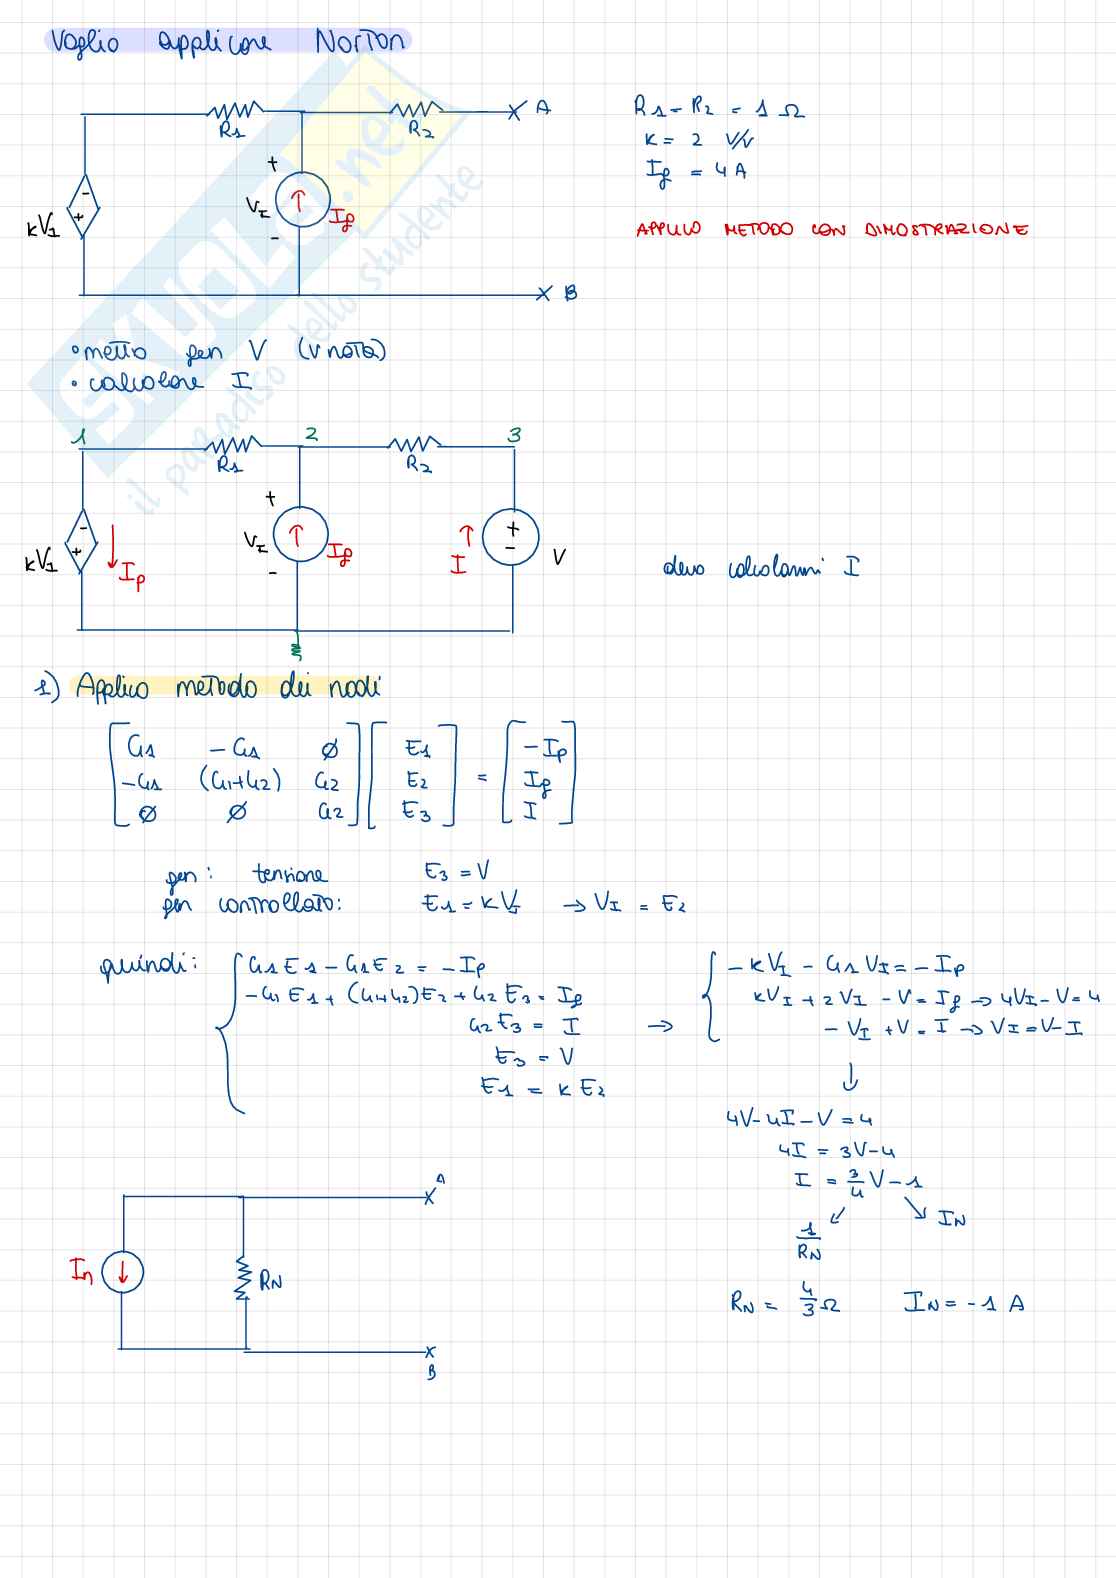 Voglio applicare Norton
R1 A
R2
R1 = R2 = 1 Ω
K = 2 V/V
Ig = 4 A
+
VI Ig
-
kVI
-
+
APPLICO METODO CON DIMOSTRAZIONE
B
• metto gen V (V nota)
• calcolare I
1 2 3
R1 R2
+
VI Ig
-
kVI
-
+
Ip
I
+
-
V
devo calcolarmi I
1) Applico metodo dei nodi
G1 -G1 Ø E1 -Ip
-G1 (G1+G2) G2 E2 = Ig
Ø Ø G2 E3 I
gen: tensione E3 = V
gen controllato: E1 = KVI → VI = E2
quindi:
G1 E1 - G1 E2 = -Ip
-G1 E1 + (G1+G2)E2 + G2 E3 = Ig
G2 E3 = I
E3 = V
E1 = K E2
→
-KVI - G1 VI = -Ip
KVI + 2VI - V = Ig → 4VI - V = 4
-VI + V = I → VI = V - I
↓
4V - 4I - V = 4
4I = 3V - 4
I = 3/4 V - 1
1/RN
IN
RN = 4/3 Ω IN = -1 A
A
In
RN
B
SKUOLA.net
il paradiso dello studente